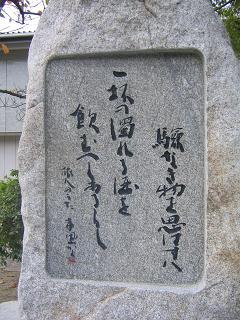 験なき物を思はずは
一坏の濁れる酒を
飲むべくあるらし